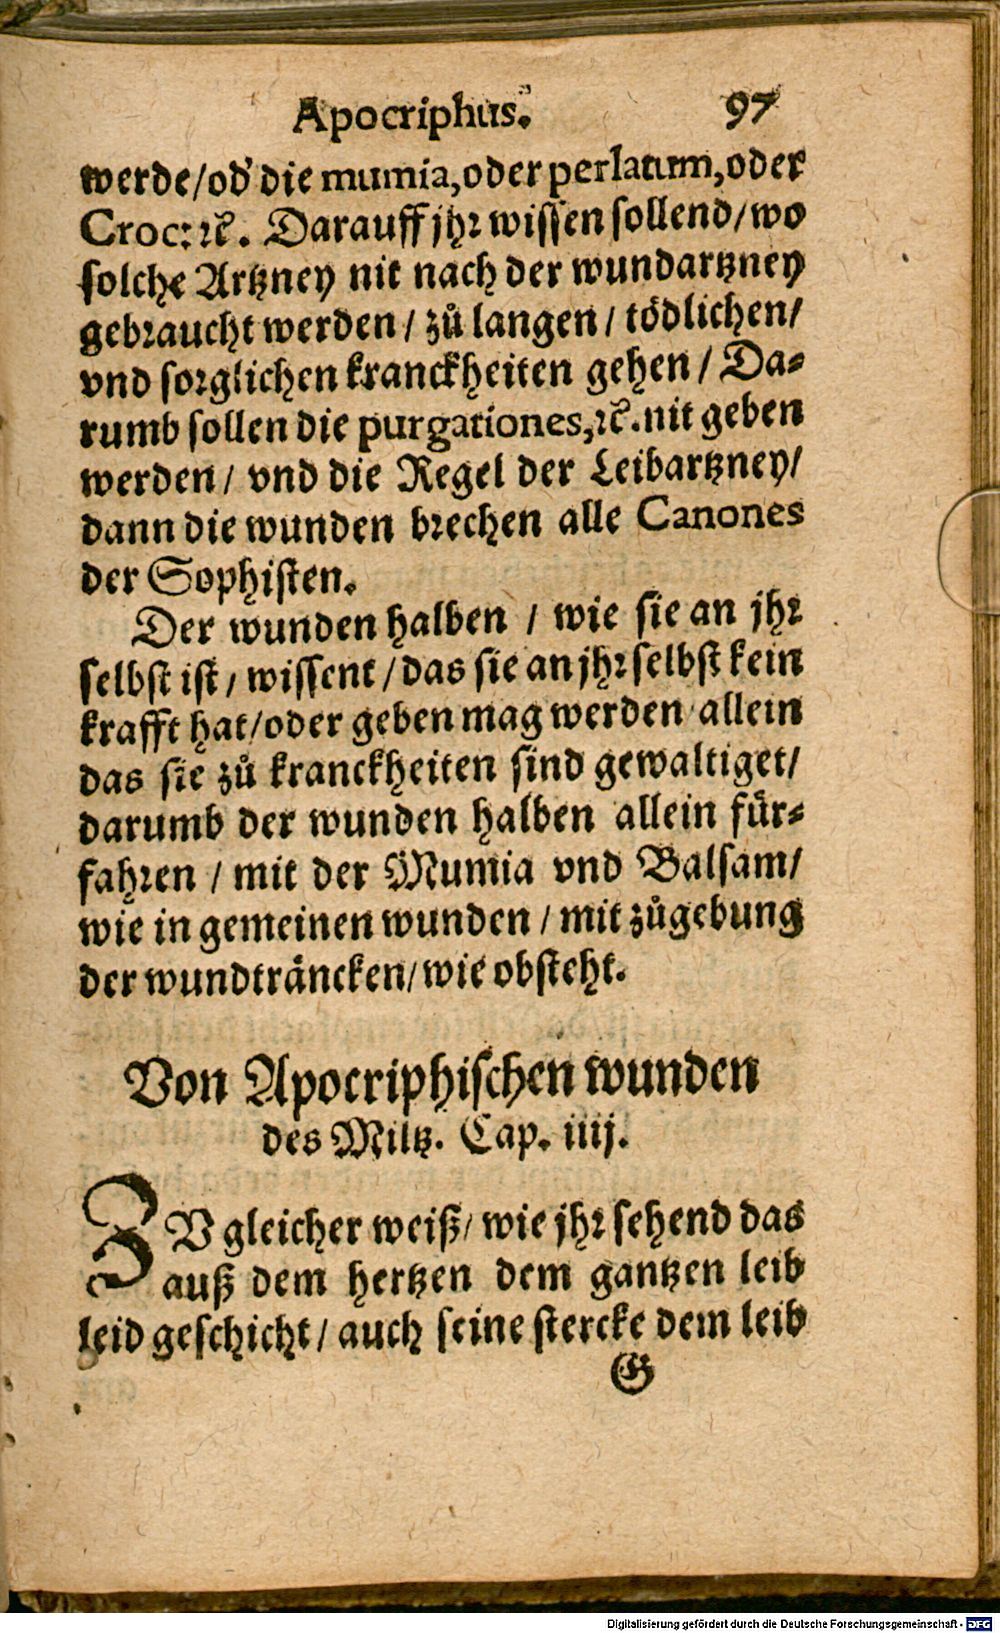 Apocriphus. 97
werde/od' die mumia, oder perlatum, oder
Croc: ꝛc. Darauff jhr wissen sollend/wo
solche Artzney nit nach der wundartzney
gebraucht werden/ zů langen/ tödlichen/
vnd sorglichen kranckheiten gehen/ Da-
rumb sollen die purgationes, ꝛc. nit geben
werden/ vnd die Regel der Leibartzney/
dann die wunden brechen alle Canones
der Sophisten.
Der wunden halben / wie sie an jhr
selbst ist/ wissent/das sie an jhr selbst kein
krafft hat/oder geben mag werden allein
das sie zů kranckheiten sind gewaltiget/
darumb der wunden halben allein für-
fahren / mit der Mumia vnd Balsam/
wie in gemeinen wunden / mit zůgebung
der wundträncken/wie obsteht.
Von Apocriphischen wunden
des Miltz. Cap. iiij.
ZV gleicher weiß/ wie jhr sehend das
auß dem hertzen dem gantzen leib
leid geschicht/ auch seine stercke dem leib
G
Digitalisierung gefördert durch die Deutsche Forschungsgemeinschaft - DFG